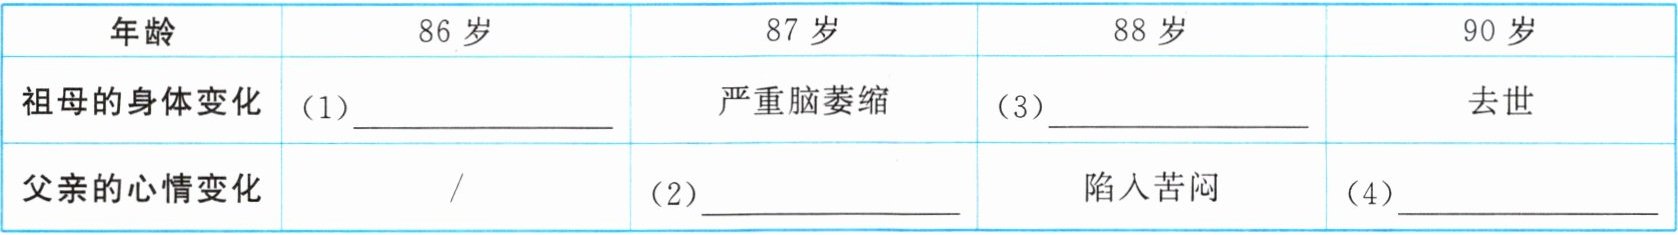 年龄 86 岁 87 岁 88 岁 90 岁
祖母的身体变化 (1)____________ 严重脑萎缩 (3)____________ 去世
父亲的心情变化 / (2)____________ 陷入苦闷 (4)____________